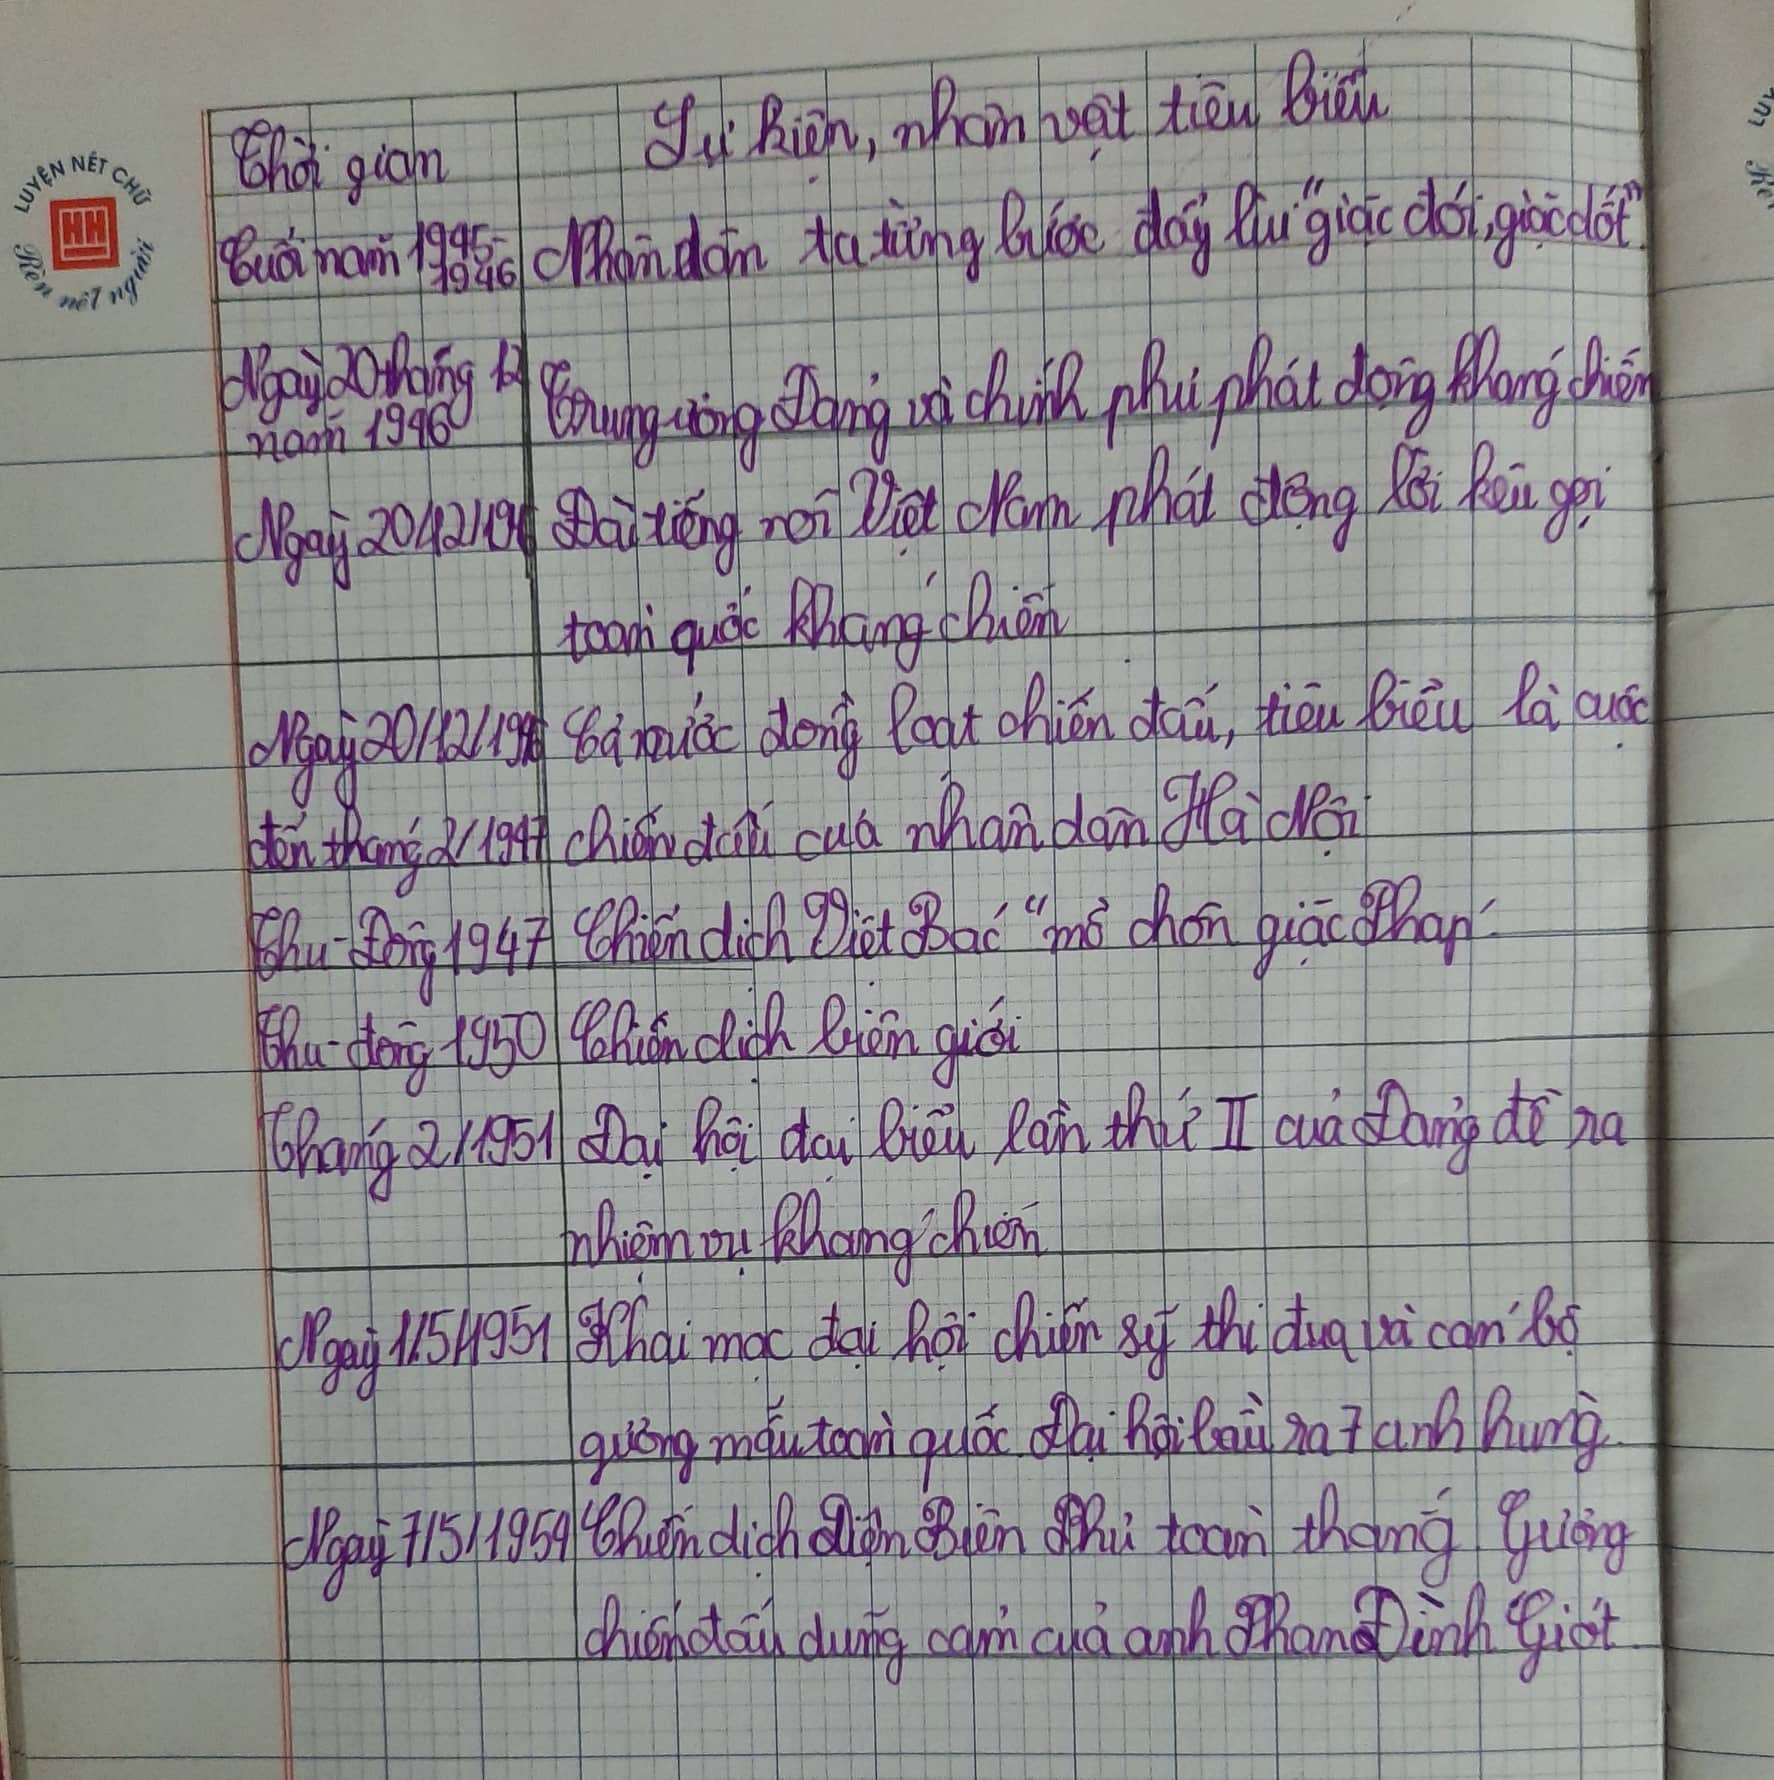 LUYỆN NÉT CHỮ
HH
Rèn nết người
Thời gian
Sự kiện, nhân vật tiêu biểu
Cuối năm 1945-1946 Nhân dân ta từng bước đẩy lùi "giặc đói, giặc dốt".
Ngày 20 tháng 12
năm 1946
Trung ương Đảng và chính phủ phát động kháng chiến
Ngày 20/12/1946 Đài tiếng nói Việt Nam phát động lời kêu gọi
toàn quốc kháng chiến
Ngày 20/12/1946 Cả nước đồng loạt chiến đấu, tiêu biểu là cuộc
đến tháng 2/1947 chiến đấu của nhân dân Hà Nội
Thu-Đông 1947 Chiến dịch Việt Bắc "mồ chôn giặc Pháp"
Thu-đông 1950 Chiến dịch biên giới
Tháng 2/1951 Đại hội đại biểu lần thứ II của Đảng đề ra
nhiệm vụ kháng chiến
Ngày 1/5/1951 Khai mạc đại hội chiến sỹ thi đua và cán bộ
gương mẫu toàn quốc Đại hội bầu ra 7 anh hùng.
Ngày 7/5/1954 Chiến dịch Điện Biên Phủ toàn thắng Gương
chiến đấu dũng cảm của anh Phan Đình Giót